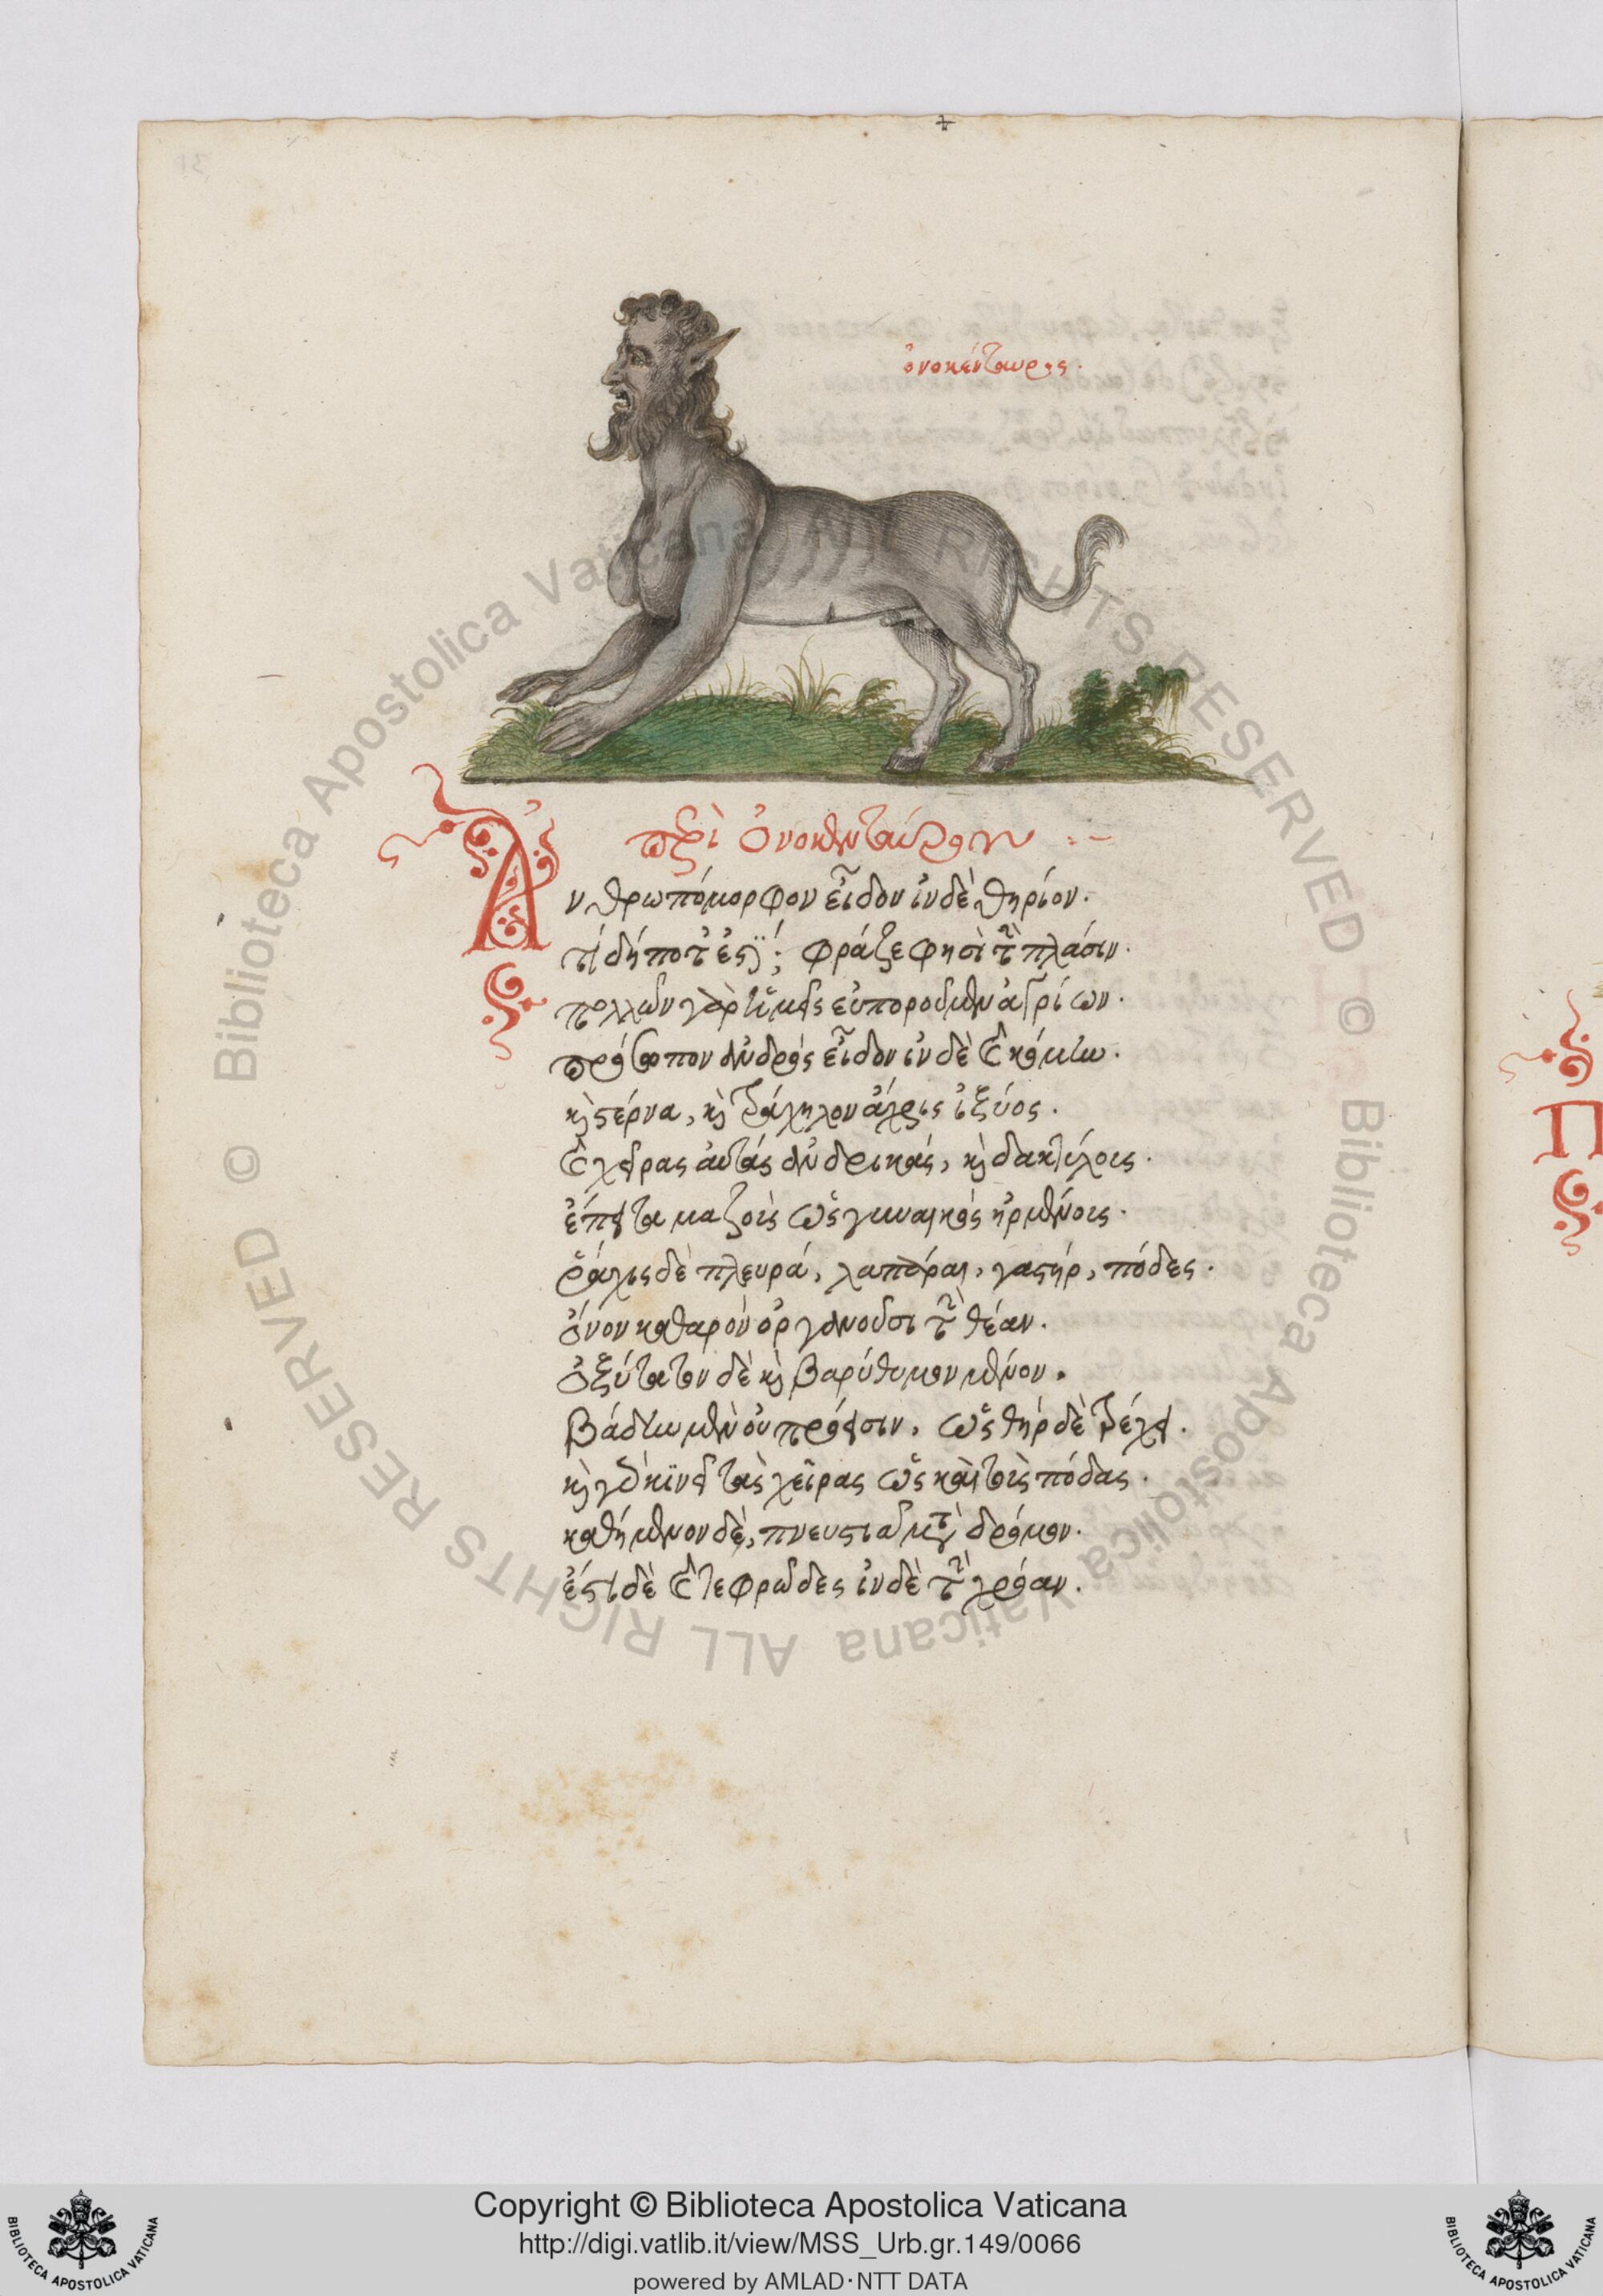 ὀνοκένταυρος.
περὶ ὀνοκενταύρων :~
Ανθρωπόμορφον εἶδον ἰνδὲ θηρίον.
τί δήποτ' ἐστί; φράζε φησὶ τὴν πλάσιν.
πολλῶν γὰρ ἡμεῖς εὐποροῦμεν ἀγρίων.
πρόσωπον ἀνδρὸς εἶδον ἰνδὲ καὶ κόμην.
καὶ στέρνα, καὶ τράχηλον ἄχρις ἰξύος.
καὶ χεῖρας αὐτὰς ἀνδρικάς, καὶ δακτύλοις.
ἔπειτα μαζοὶς ὡς γυναικὸς ἠρμένοις.
ῥάχις δὲ πλευρά, λαπάραι, γαστήρ, πόδες.
ὄνον καθαρὸν ὀργανοῦσι τὴν θέαν.
ὀξύτατον δὲ καὶ βαρύθυμον μένον.
βάδην μὲν οὐ πρόεισιν, ὡς θὴρ δὲ τρέχει.
καὶ γὰρ κινεῖ τὰς χεῖρας ὡς καὶ τοὺς πόδας.
καθήμενον δὲ, πνευστιᾶ μετὰ δρόμον.
ἔστι δὲ καὶ τεφρῶδες ἰνδὲ τὴν χρόαν.
Copyright © Biblioteca Apostolica Vaticana
http://digi.vatlib.it/view/MSS_Urb.gr.149/0066
powered by AMLAD·NTT DATA
BIBLIOTECA APOSTOLICA VATICANA
BIBLIOTECA APOSTOLICA VATICANA
© Biblioteca Apostolica Vaticana ALL RIGHTS RESERVED
© Biblioteca Apostolica Vaticana ALL RIGHTS RESERVED